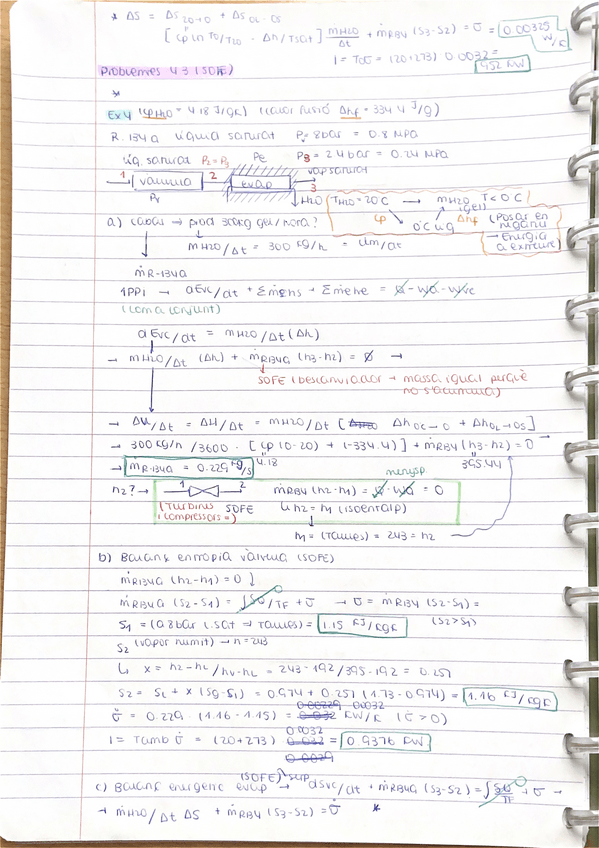 * ΔS = ΔS20→0 + ΔS0L-0S
[cp ln T0/T20 - Δh/Tsat] mH2O/Δt + ṁR134 (s3-s2) = σ̇ = 0.00325 W/K
I = T0σ̇ = (20+273) 0.0032 =
952 kW
Problemes 4.3 (SOFE)
*
Ex4 (cpH2O = 4.18 J/gK) (calor fusió Δhf = 334.4 J/g)
R-134a líquid saturat Pv = 8bar = 0.8 MPa
líq. saturat P2 = P3 Pe P3 = 2.4 bar = 0.24 MPa
1 → vàlvula 2 → evap → vap saturat 3
Pv
↓H2O TH2O = 20C → mH2O T<0C (gel)
cp ↘ 0C líq ↗ Δhf
(Posar en negatiu → Energia a extreure)
a) cabal → prod 300kg gel/hora?
ṁH2O/Δt = 300 kg/h = dm/dt
ṁR-134a
1PPI → dEvc/dt + Σṁshs - Σṁehe = Q̇ - Ẇa - Ẇvc
(com a conjunt)
dEvc/dt = mH2O/Δt (Δh)
→ mH2O/Δt (Δh) + ṁR134a (h3-h2) = 0 →
SOFE (bescanviador → massa igual perquè no s'acumula)
→ ΔU/Δt = ΔH/Δt = mH2O/Δt [Δh0C→0 + Δh0L→0S]
→ 300 kg/h /3600 · [cp (0-20) + (-334.4)] + ṁR134 (h3-h2) = 0 →
4.18
395.44
→ ṁR-134a = 0.229 kg/s
menysp
h2? → 1 2 ṁR134a (h2-h1) = Q̇ - Ẇa = 0
(Turbines i compressors =) SOFE ↳ h2 = h1 (isoentalp)
h1 = (taules) = 243 = h2
b) Balanç entropia vàlvula (SOFE)
ṁR134a (h2-h1) = 0
ṁR134a (s2-s1) = ∫δQ̇/TF + σ̇ → σ̇ = ṁR134 (s2-s1) =
(s2>s1)
s1 = (a 8bar l.sat → taules) = 1.15 kJ/kgK
s2 (vapor humit) → h = 243
↳ x = h2-hL/hv-hL = 243-192/395-192 = 0.251
s2 = sL + x (sg-sL) = 0.974 + 0.251 (1.73-0.974) = 1.16 kJ/kgK
0.00229 0.0032
σ̇ = 0.229 · (1.16-1.15) = 0.032 kW/K (σ̇ > 0)
0.0032
I = Tamb σ̇ = (20+273) 0.032 = 0.9376 kW
0.0029
(SOFE) sup
c) Balanç energètic evap → dSvc/dt + ṁR134a (s3-s2) = ∫δQ̇/TF + σ̇ →
→ ṁH2O/Δt ΔS + ṁR134a (s3-s2) = σ̇ *